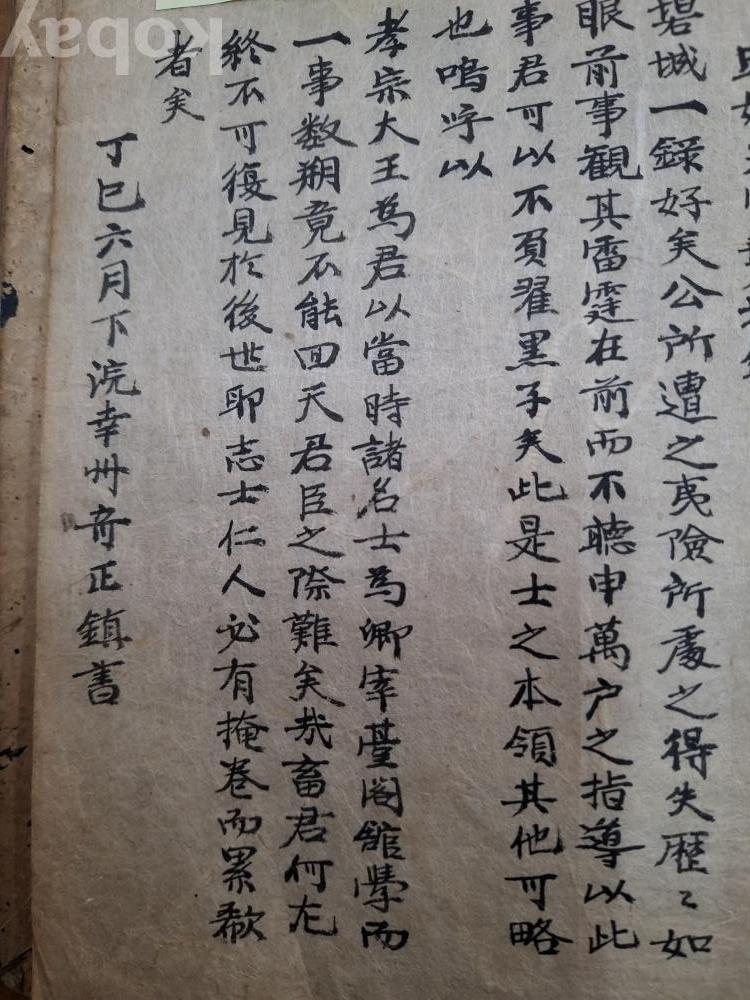 碧城一錄好矣公所遭之夷險所處之得失歷〻如
眼前事觀其雷霆在前而不聽申萬户之指導以此
事君可以不負翟黑子矣此是士之本領其他可略
也嗚呼以
孝宗大王為君以當時諸名士為卿宰臺閣館學而
一事数朔竟不能回天君臣之際難矣哉畜君何尤
終不可復見於後世耶志士仁人必有掩卷而累欷
者矣
丁巳六月下浣幸州奇正鎮書
kobay